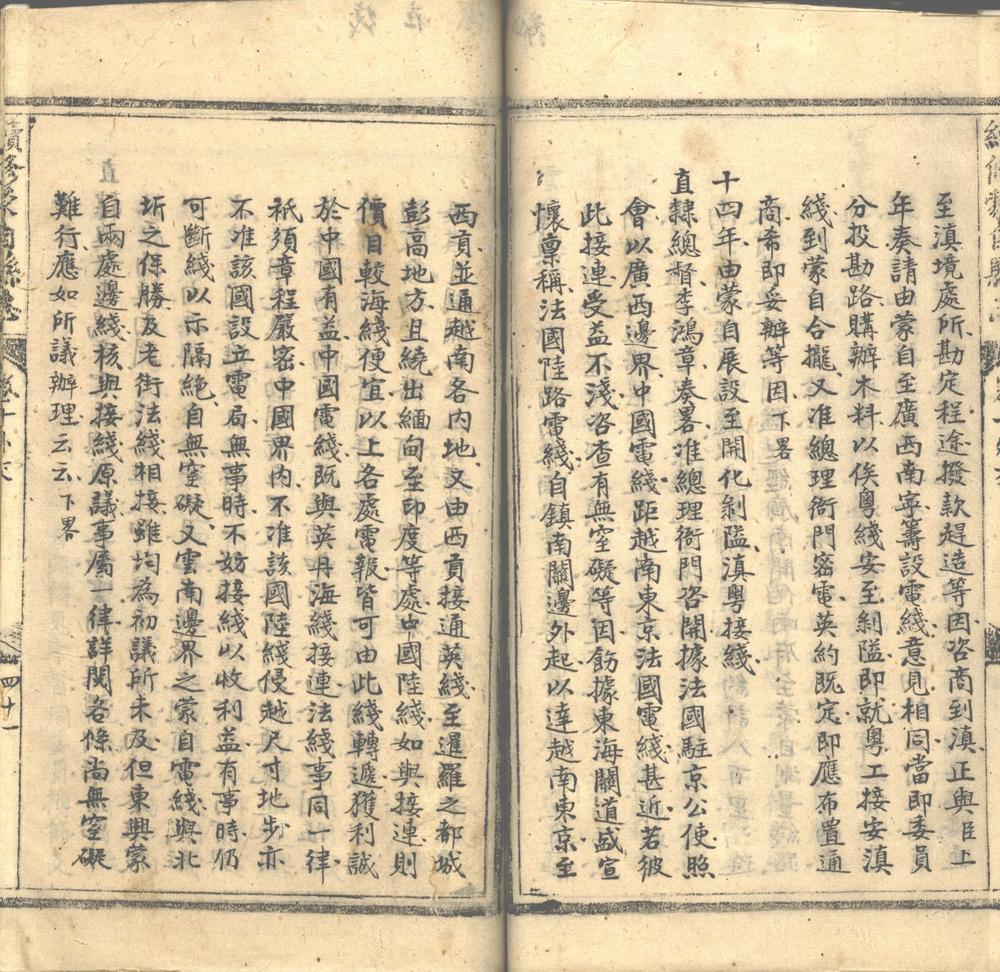 至滇境處所勘定程途撥款趕造等因咨商到滇正與臣上
年奏請由蒙自至廣西南寧籌設電綫意見相同當即委員
分投勘路購辦木料以俟粵綫安至剝隘即就粵工接安滇
綫到蒙自合攏又准總理衙門密電英約既定即應布置通
商希即妥辦等因下畧
十四年由蒙自展設至開化剝隘滇粵接綫
直隸總督李鴻章奏畧准總理衙門咨開據法國駐京公使照
會以廣西邊界中國電綫距越南東京法國電綫甚近若彼
此接連受益不淺咨查有無窒礙等因飭據東海關道盛宣
懷稟稱法國陸路電綫自鎮南關邊外起以達越南東京至
西貢並通越南各內地又由西貢接通英綫至暹羅之都城
彭高地方且繞出緬甸至印度等處中國陸綫如與接連則
價目較海綫便宜以上各處電報皆可由此綫轉遞獲利誠
於中國有益中國電綫既與英丹海綫接連法綫事同一律
祇須章程嚴密中國界內不准該國陸綫侵越尺寸地步亦
不准該國設立電局無事時不妨接綫以收利益有事時仍
可斷綫以示隔絕自無窒礙又雲南邊界之蒙自電綫與北
圻之保勝及老街法綫相接雖均為初議所未及但東興蒙
自兩處邊綫核與接綫原議事屬一律詳閱各條尚無窒礙
難行應如所議辦理云云下畧
直
續修蒙自縣志
四十一